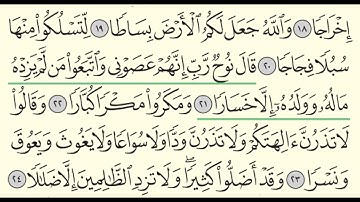 إِخْرَاجًا ١٨ وَٱللَّهُ جَعَلَ لَكُمُ ٱلْأَرْضَ بِسَاطًا ١٩ لِّتَسْلُكُوا۟ مِنْهَا
سُبُلًا فِجَاجًا ٢٠ قَالَ نُوحٌ رَّبِّ إِنَّهُمْ عَصَوْنِى وَٱتَّبَعُوا۟ مَن لَّمْ يَزِدْهُ
مَالُهُۥ وَوَلَدُهُۥٓ إِلَّا خَسَارًا ٢١ وَمَكَرُوا۟ مَكْرًا كُبَّارًا ٢٢ وَقَالُوا۟
لَا تَذَرُنَّ ءَالِهَتَكُمْ وَلَا تَذَرُنَّ وَدًّا وَلَا سُوَاعًا وَلَا يَغُوثَ وَيَعُوقَ
وَنَسْرًا ٢٣ وَقَدْ أَضَلُّوا۟ كَثِيرًا ۖ وَلَا تَزِدِ ٱلظَّـٰلِمِينَ إِلَّا ضَلَـٰلًا ٢٤